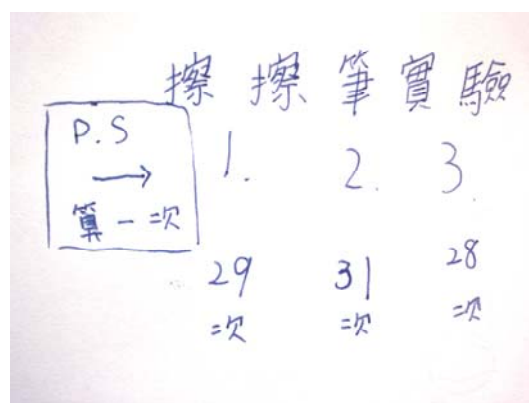 擦擦筆實驗
P.S
→
算一次
1. 2. 3.
29 31 28
次 次 次